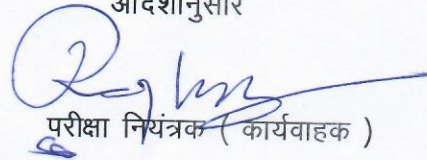 आदेशानुसार
परीक्षा नियंत्रक ( कार्यवाहक )